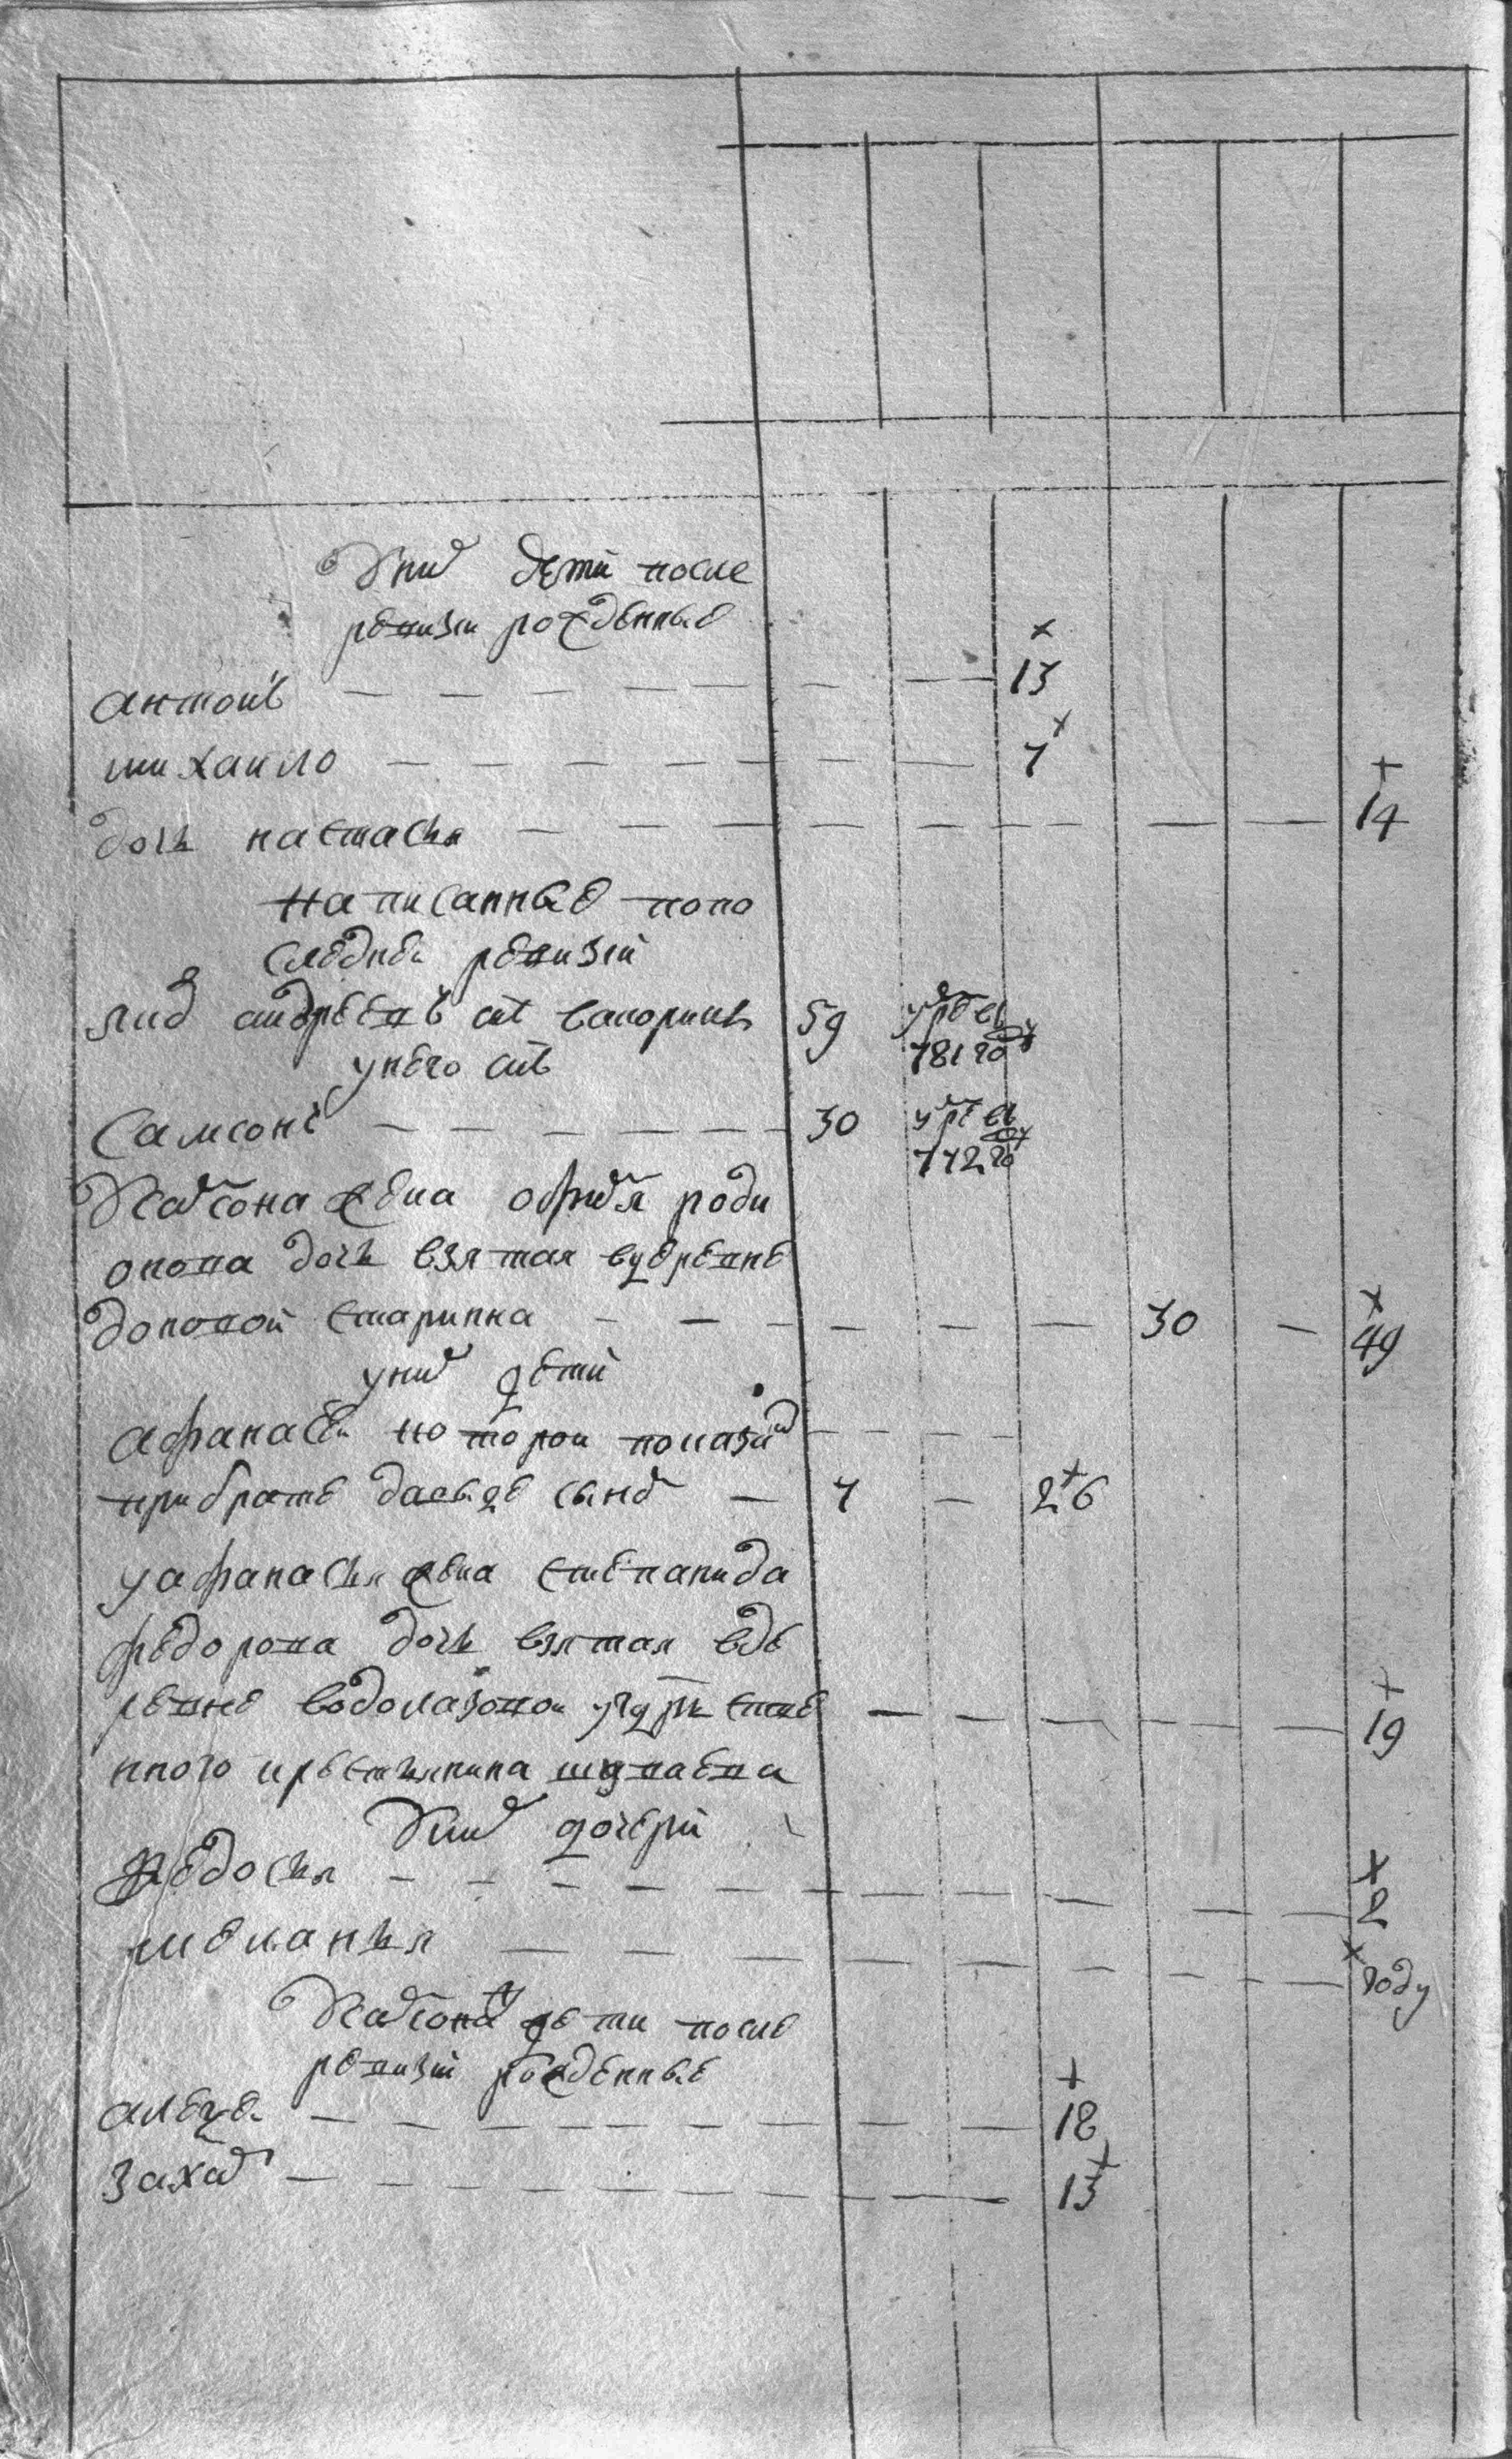 У них дети после
ревизии рожденные
антонъ — — — — — — — — 13
михаило — — — — — — — 7
дочь настасья — — — — — — — — 14
написанные попо
следнеи ревизии
андреевъ снъ 59 умре въ 781 году
унего снъ
Самсонъ — — — — — — 30 умре въ 772 году
У Самсона жена офимья роди
онова дочь взятая вдеревне
доновой старинка — — — — — — 30 — 49
уних дети
афанасеи которои показан — — — —
прибрате давыде сынъ — 7 — 26
уафанасья жена степанида
федорова дочь взятая вде
ревне водолазовои — — — — — 19
нного крестьянина
У них дочери
Федосья — — — — — — — — — — 2
меланья — — — — — — — — — году
У Самсона дети после
ревизии рожденные
алексеи — — — — — — — — 18
захар — — — — — — — — 13